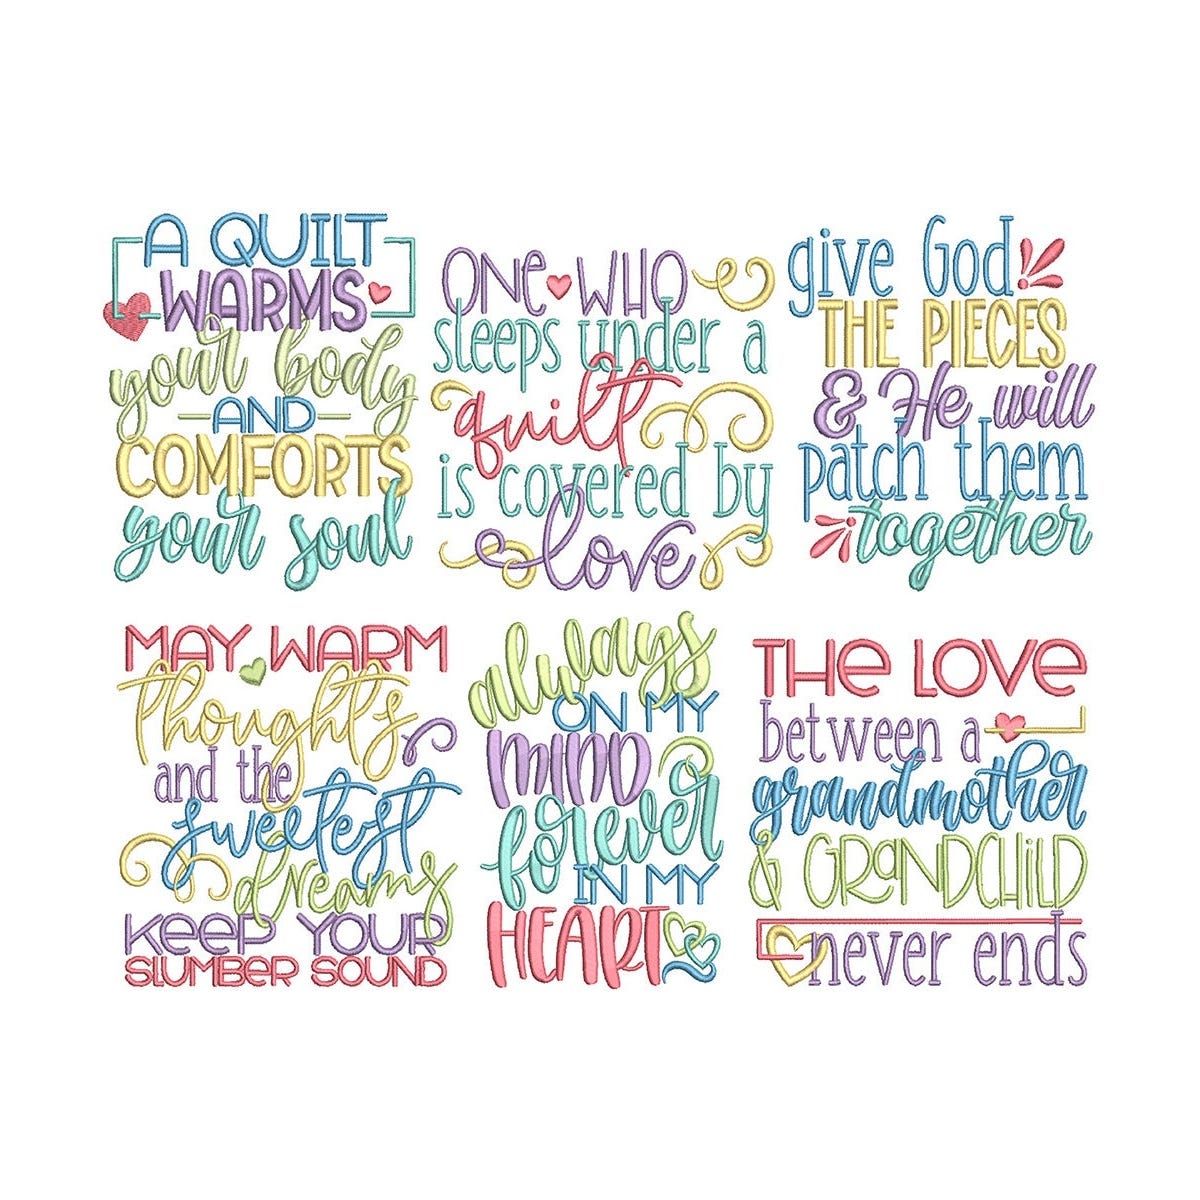 A QUILT
WARMS
your body
AND
COMFORTS
your soul
ONE WHO
sleeps under a
quilt
is covered by
love
give God
THE PIECES
& He will
patch them
together
MAY WARM
thoughts
and the
sweetest
dreams
KeeP YOUR
SLUMBeR SOUND
always
ON MY
MIND
forever
IN MY
HEART
THe LOVe
between a
grandmother
& GRaNDCHiLD
never ends